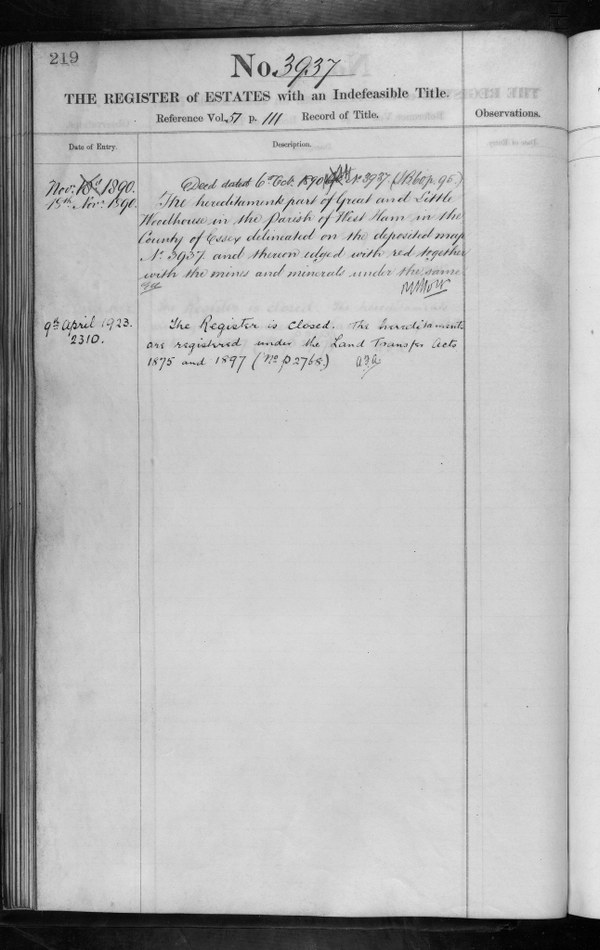 219
No. 3937
THE REGISTER of ESTATES with an Indefeasible Title.
Reference Vol. 51 p. 111 Record of Title.
Observations.
Date of Entry.
Description.
Nov. 10th 1890.
Deed dated 6th Oct. 1890 No 3937. p. 95.)
19th Nov. 1890.
The hereditaments part of Great and Little
Woodhouse in the Parish of West Ham in the
County of Essex delineated on the deposited map
No. 3937 and thereon edged with red together
with the mines and minerals under the same
9th April 1923.
2310.
The Register is closed. The hereditaments
are registered under the Land Transfer Acts
1875 and 1897 (No P2768)